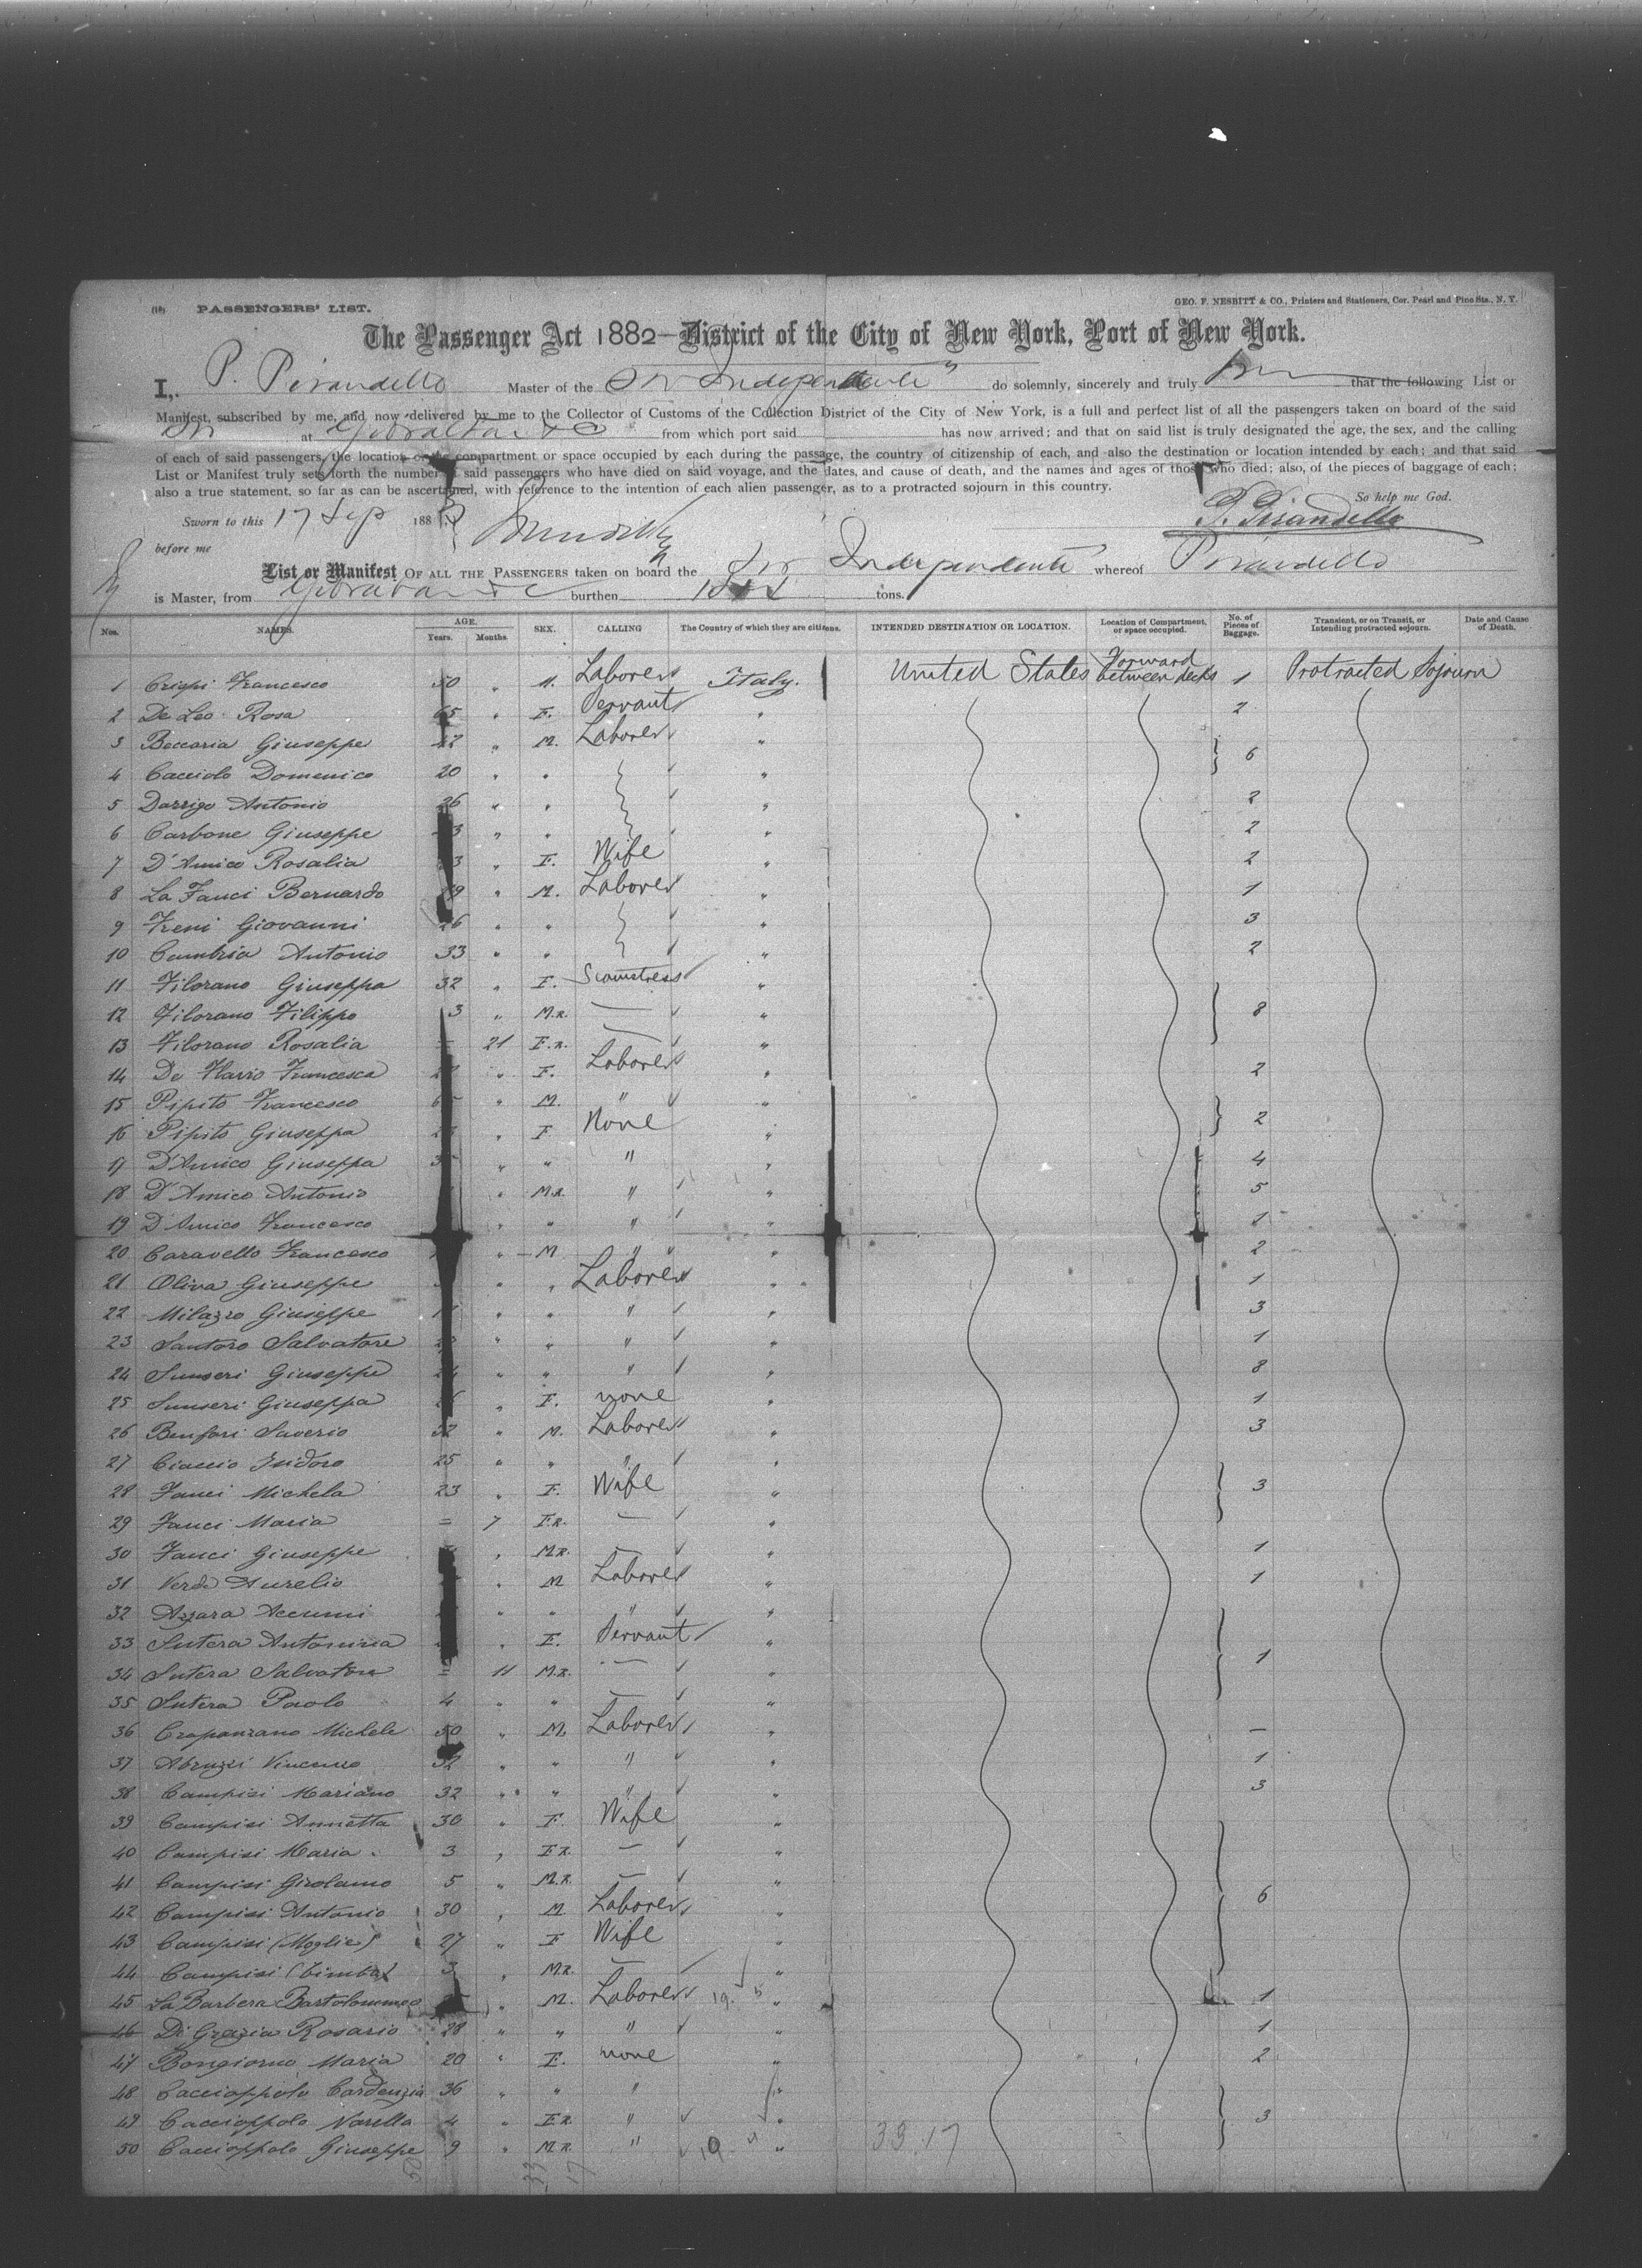 (18) PASSENGERS' LIST. GEO. F. NESBITT & CO., Printers and Stationers, Cor. Pearl and Pine Sts., N. Y.
The Passenger Act 1882—District of the City of New York, Port of New York.
I, P. Pirandello Master of the Str Independente do solemnly, sincerely and truly that the following List or
Manifest, subscribed by me, and now delivered by me to the Collector of Customs of the Collection District of the City of New York, is a full and perfect list of all the passengers taken on board of the said
Str at Gibraltar &c from which port said has now arrived; and that on said list is truly designated the age, the sex, and the calling
of each of said passengers, the location or the compartment or space occupied by each during the passage, the country of citizenship of each, and also the destination or location intended by each; and that said
List or Manifest truly sets forth the number of said passengers who have died on said voyage, and the dates, and cause of death, and the names and ages of those who died; also, of the pieces of baggage of each;
also a true statement, so far as can be ascertained, with reference to the intention of each alien passenger, as to a protracted sojourn in this country.
So help me God.
Sworn to this 17 Sep 188 P. Pirandello
before me
List or Manifest OF ALL THE PASSENGERS taken on board the Str Independente whereof Pirandello
is Master, from Gibraltar &c burthen tons.
Nos. NAMES. AGE. Years. Months. SEX. CALLING The Country of which they are citizens. INTENDED DESTINATION OR LOCATION. Location of Compartment, or space occupied. No. of Pieces of Baggage. Transient, or on Transit, or Intending protracted sojourn. Date and Cause of Death.
1 Crispi Francesco 50 " M. Laborer Italy. United States Forward between decks 1 Protracted Sojourn
2 De Leo Rosa 65 " F. Servant " 2
3 Beccaria Giuseppe " M. Laborer "
4 Cacciolo Domenico 20 " " " 6
5 Darrigo Antonio 26 " " " 2
6 Carbone Giuseppe " " " 2
7 D'Amico Rosalia " F. Wife " 2
8 La Fauci Bernardo " M. Laborer " 1
9 Freni Giovanni 26 " " " 3
10 Cambria Antonio 33 " " " 2
11 Filorano Giuseppa 32 " F. Seamstress "
12 Filorano Filippo 3 " M.R. — " 8
13 Filorano Rosalia 21 F.R. — "
14 Francesca " F. Laborer " 2
15 Pipito Francesco " M. " "
16 Pipito Giuseppa " F None " 2
17 D'Amico Giuseppa " " " " 4
18 D'Amico Antonio " M.R. " " 5
19 D'Amico Francesco " " " " 1
20 Caravello Francesco " M " " 2
21 Oliva Giuseppe " " Laborer " 1
22 Milazzo Giuseppe " " " " 3
23 Santoro Salvatore " " " " 1
24 Sunseri Giuseppe " " " " 8
25 Sunseri Giuseppa " F. none " 1
26 Benfari Saverio 32 " M. Laborer " 3
27 Ciaccio Isidoro 25 " " " "
28 Fauci Michela 23 " F. Wife " 3
29 Fauci Maria = 7 F.R. — "
30 Fauci Giuseppe " M.R. — " 1
31 Verde Aurelio " M Laborer " 1
32 Azzara " " " "
33 Sutera Antonina " F. Servant "
34 Sutera Salvatore = 11 M.R. — " 1
35 Sutera Paolo 4 " " — "
36 Crapanzano Michele 50 " M. Laborer " —
37 Abruzzi Vincenzo 32 " " " " 1
38 Campisi Mariano 32 " " " " 3
39 Campisi Annetta 30 " F. Wife "
40 Campisi Maria 3 " F.R. — "
41 Campisi Girolamo 5 " M.R. — "
42 Campisi Antonio 30 " M. Laborer " 6
43 Campisi (Moglie) 27 " F Wife "
44 Campisi (bimba) 3 " M.R. — "
45 La Barbera Bartolommeo " M. Laborer " 1
46 Di Grazia Rosario 28 " " " " 1
47 Bongiorno Maria 20 " F. none " 2
48 Caccioppolo Cardenzia 36 " " " "
49 Caccioppolo 4 " F.R. " " 3
50 Caccioppolo Giuseppe 9 " M.R. " "
33 17
33 17